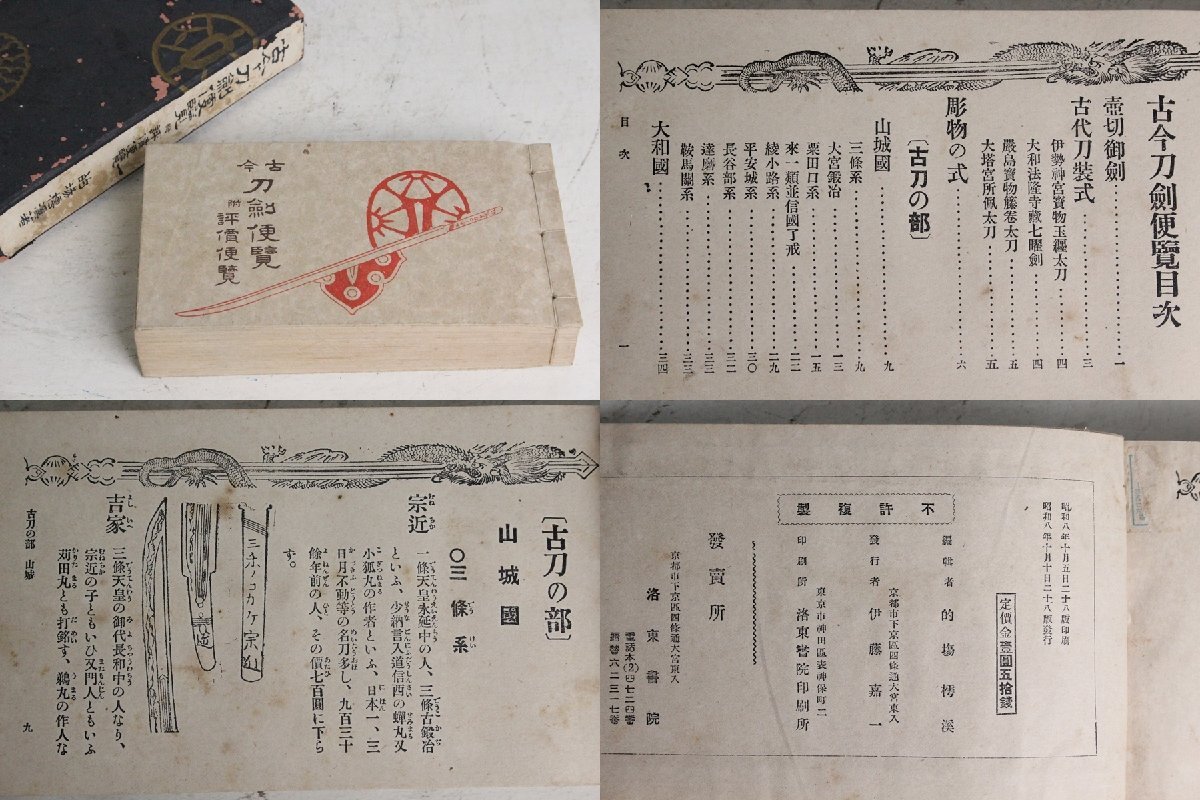 古今刀劍便覽
古今
刀劍便覽
附
評價便覽
古今刀劍便覽目次
壺切御劍…一
古代刀裝式…三
伊勢神宮寶物玉纒太刀…四
大和法隆寺藏七曜劍…四
嚴島寶物籐卷太刀…五
大塔宮所佩太刀…五
彫物の式…六
〔古刀の部〕
山城國…九
三條系…九
大宮鍛冶…一三
粟田口系…一五
來一類並信國了戒…二二
綾小路系…二九
平安城系…三〇
長谷部系…三二
達磨系…三三
鞍馬關系…三三
大和國…三四
目次
一
〔古刀の部〕
山城國
〇三條系
宗近
一條天皇永延中の人、三條古鍛冶
といふ、少納言入道信西の蟬丸又
小狐丸の作者といふ、日本一、三
日月不動等の名刀多し、九百三十
餘年前の人、その價七百圓に下ら
ず。
三条ノコカケ宗近
吉家
三條天皇の御代長和中の人なり、
宗近の子ともいひ又門人ともいふ
苅田丸とも打銘す、鵜丸の作人な
古刀の部 山城
九
昭和八年十月五日二十八版印刷
昭和八年十月十日二十八版發行
定價金壹圓五拾錢
不許複製
編輯者 的塲樗溪
京都市下京區四條通大宮東入
發行者 伊藤嘉一
東京市神田區表神保町二
印刷所 洛東書院印刷所
發賣所
京都市下京區四條通大宮東入
洛東書院
電話本(2)四七二四番
振替六二三一七番